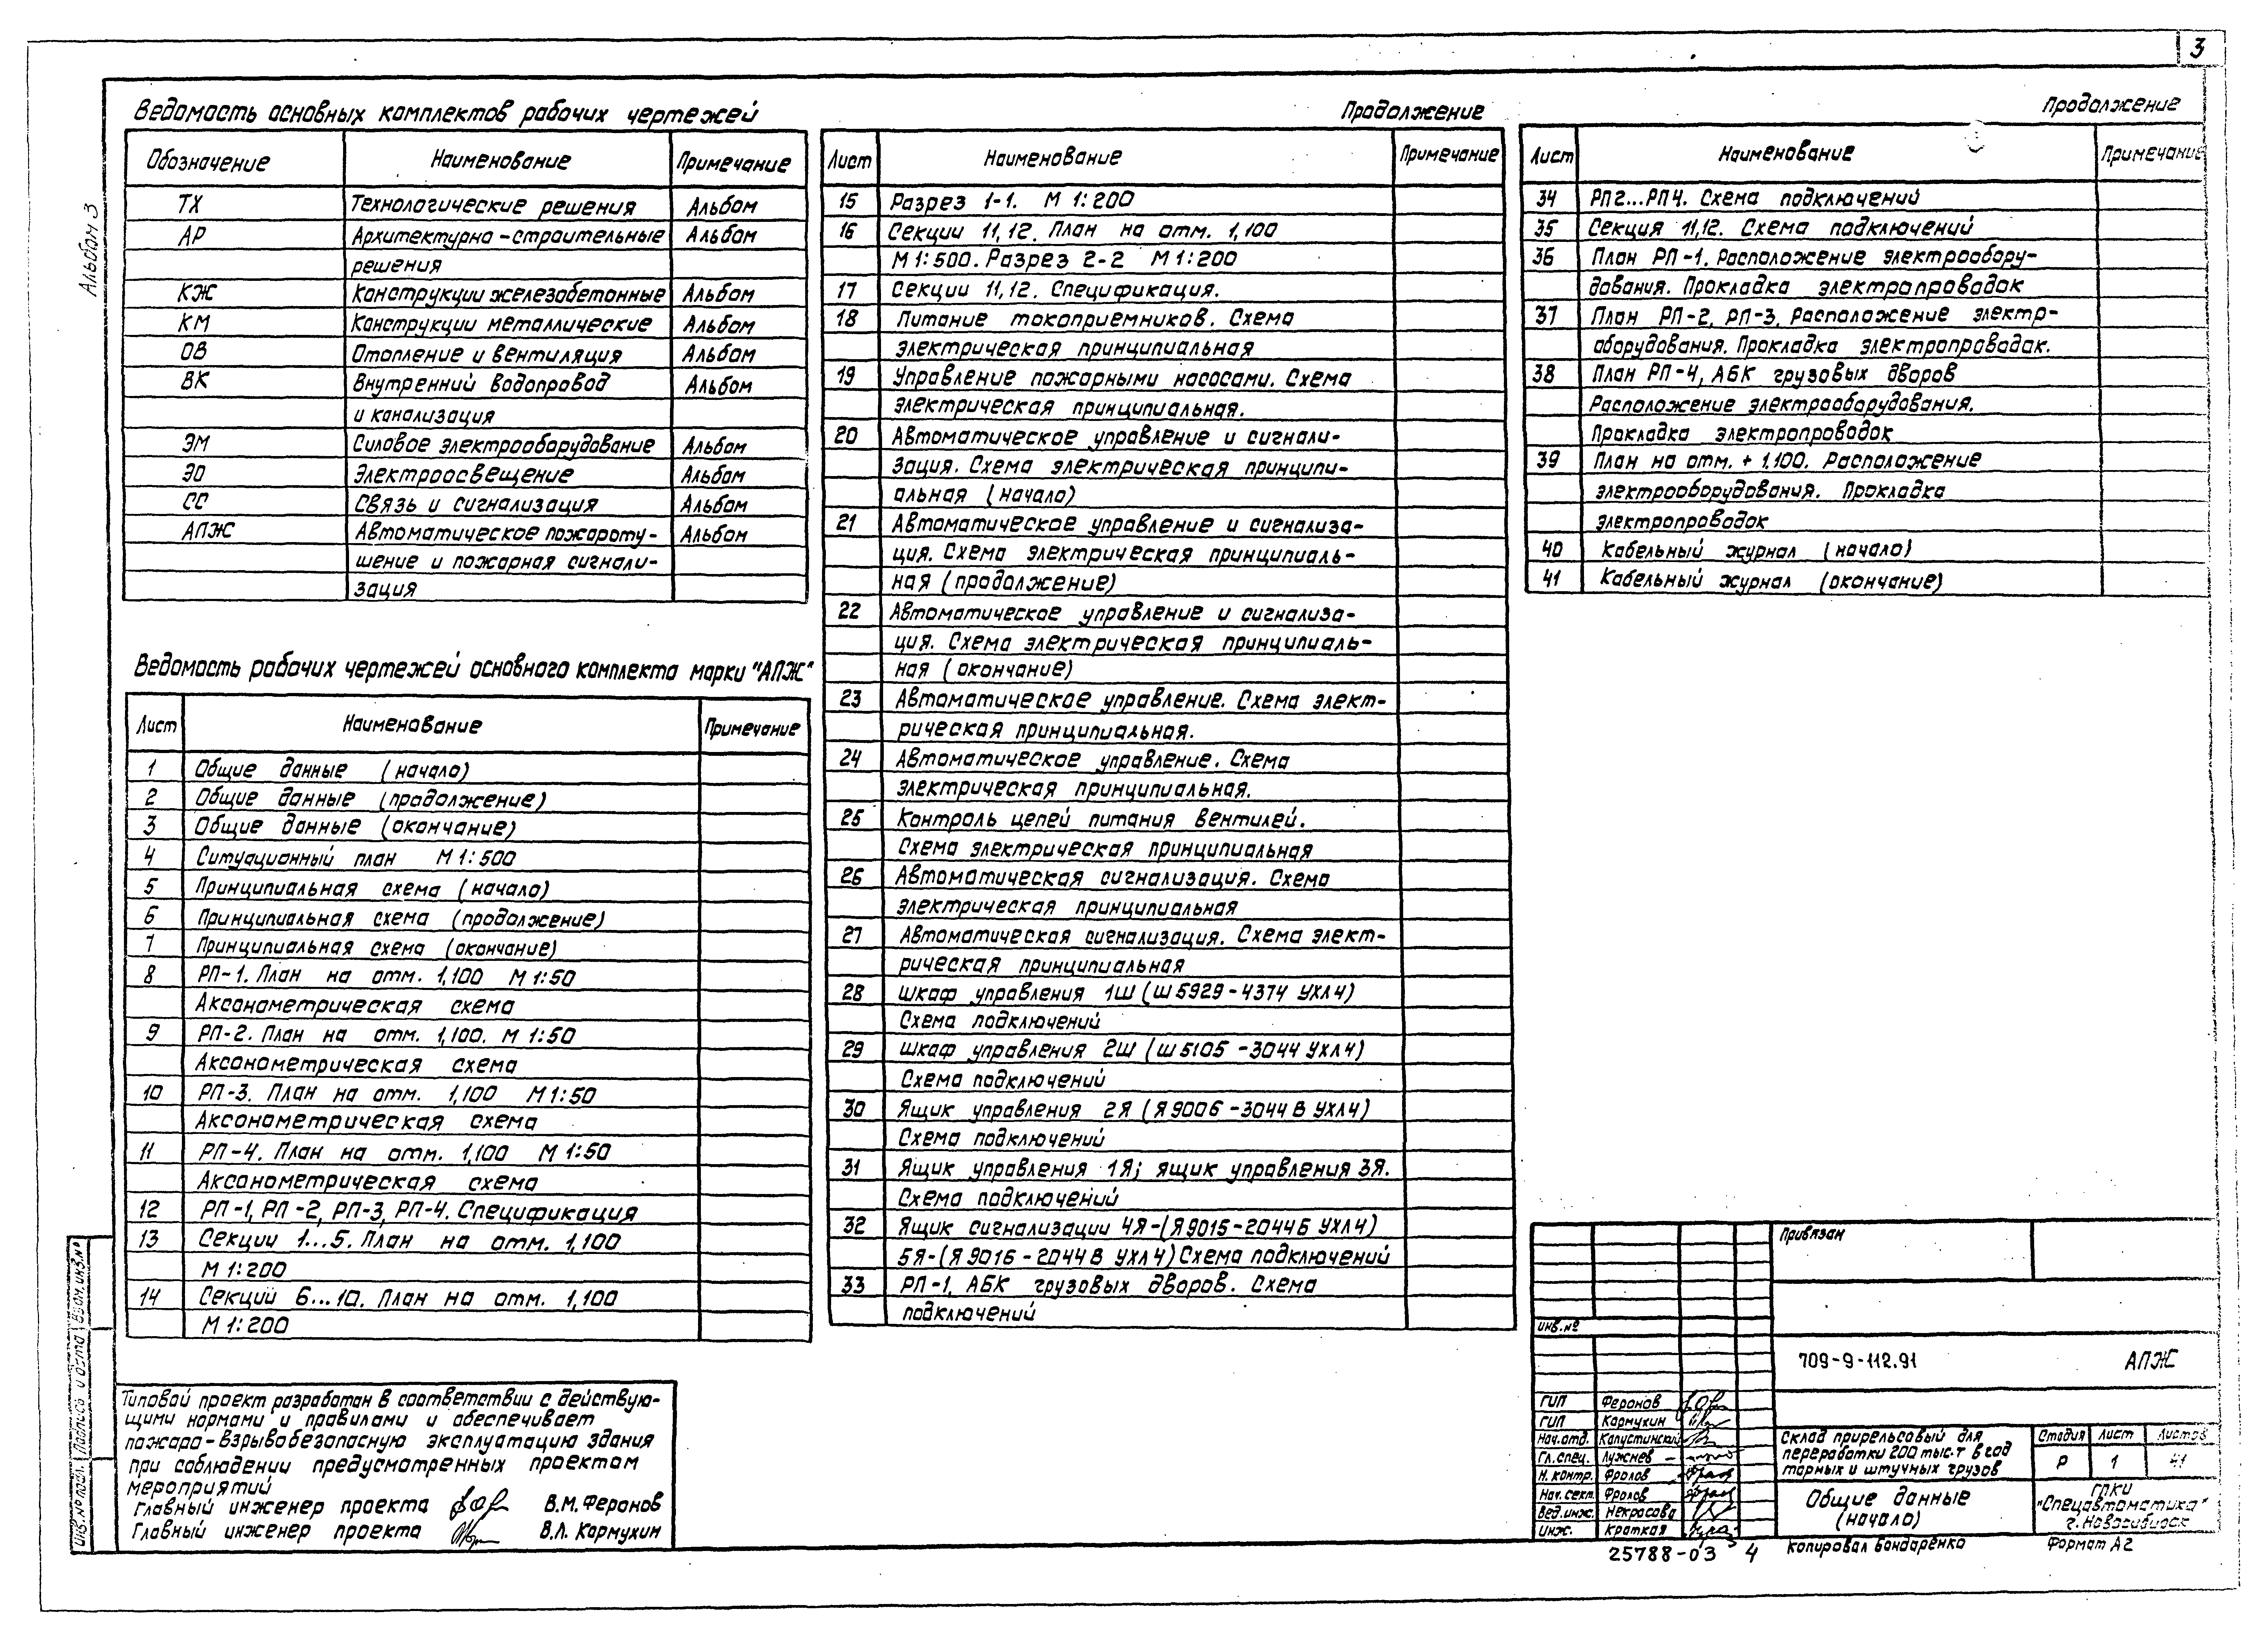 3
Альбом 3
Ведомость основных комплектов рабочих чертежей
Обозначение Наименование Примечание
ТХ Технологические решения Альбом
АР Архитектурно-строительные Альбом
решения
КЖ Конструкции железобетонные Альбом
КМ Конструкции металлические Альбом
ОВ Отопление и вентиляция Альбом
ВК Внутренний водопровод Альбом
и канализация
ЭМ Силовое электрооборудование Альбом
ЭО Электроосвещение Альбом
СС Связь и сигнализация Альбом
АПЖ Автоматическое пожароту- Альбом
шение и пожарная сигнали-
зация
Ведомость рабочих чертежей основного комплекта марки "АПЖ"
Лист Наименование Примечание
1 Общие данные (начало)
2 Общие данные (продолжение)
3 Общие данные (окончание)
4 Ситуационный план М 1:500
5 Принципиальная схема (начало)
6 Принципиальная схема (продолжение)
7 Принципиальная схема (окончание)
8 РП-1. План на отм. 1,100 М 1:50
Аксонометрическая схема
9 РП-2. План на отм. 1,100. М 1:50
Аксонометрическая схема
10 РП-3. План на отм. 1,100 М 1:50
Аксонометрическая схема
11 РП-4. План на отм. 1,100 М 1:50
Аксонометрическая схема
12 РП-1, РП-2, РП-3, РП-4. Спецификация
13 Секции 1...5. План на отм. 1,100
М 1:200
14 Секций 6...10. План на отм. 1,100
М 1:200
Типовой проект разработан в соответствии с действую-
щими нормами и правилами и обеспечивает
пожаро-взрывобезопасную эксплуатацию здания
при соблюдении предусмотренных проектом
мероприятий
Главный инженер проекта В.М. Феронов
Главный инженер проекта В.Л. Кармухин
Продолжение
Лист Наименование Примечание
15 Разрез 1-1. М 1:200
16 Секции 11,12. План на отм. 1,100
М 1:500. Разрез 2-2 М 1:200
17 Секции 11,12. Спецификация.
18 Питание токоприемников. Схема
электрическая принципиальная
19 Управление пожарными насосами. Схема
электрическая принципиальная.
20 Автоматическое управление и сигнали-
зация. Схема электрическая принципи-
альная (начало)
21 Автоматическое управление и сигнализа-
ция. Схема электрическая принципиаль-
ная (продолжение)
22 Автоматическое управление и сигнализа-
ция. Схема электрическая принципиаль-
ная (окончание)
23 Автоматическое управление. Схема элект-
рическая принципиальная.
24 Автоматическое управление. Схема
электрическая принципиальная.
25 Контроль цепей питания вентилей.
Схема электрическая принципиальная
26 Автоматическая сигнализация. Схема
электрическая принципиальная
27 Автоматическая сигнализация. Схема элект-
рическая принципиальная
28 Шкаф управления 1Ш (Ш5929-4374 УХЛ4)
Схема подключений
29 Шкаф управления 2Ш (Ш5105-3044 УХЛ4)
Схема подключений
30 Ящик управления 2Я (Я9006-3044В УХЛ4)
Схема подключений
31 Ящик управления 1Я; ящик управления 3Я.
Схема подключений
32 Ящик сигнализации 4Я-(Я9015-2044Б УХЛ4)
5Я-(Я9016-2044В УХЛ4) Схема подключений
33 РП-1, АБК грузовых дворов. Схема
подключений
Продолжение
Лист Наименование Примечание
34 РП2...РП4. Схема подключений
35 Секция 11,12. Схема подключений
36 План РП-1. Расположение электрообору-
дования. Прокладка электропроводок
37 План РП-2, РП-3. Расположение электр-
оборудования. Прокладка электропроводок.
38 План РП-4, АБК грузовых дворов
Расположение электрооборудования.
Прокладка электропроводок
39 План на отм. +1.100. Расположение
электрооборудования. Прокладка
электропроводок
40 Кабельный журнал (начало)
41 Кабельный журнал (окончание)
Привязан
Инв.№
709-9-112.91 АПЖ
ГИП Феронов
ГИП Кармухин
Нач.отд. Капустинский
Гл.спец. Лужнев
Н.контр. Фролов
Нач.сект. Фролов
Вед.инж. Некрасова
Инж. Краткая
Склад прирельсовый для
переработки 200 тыс.т в год
тарных и штучных грузов
Стадия Лист Листов
Р 1 41
Общие данные
(начало)
ГПКИ
"Спецавтоматика"
г. Новосибирск
25788-03 4
Копировал Бондаренко
Формат А2
Инв.№ подл. Подпись и дата Взам.инв.№